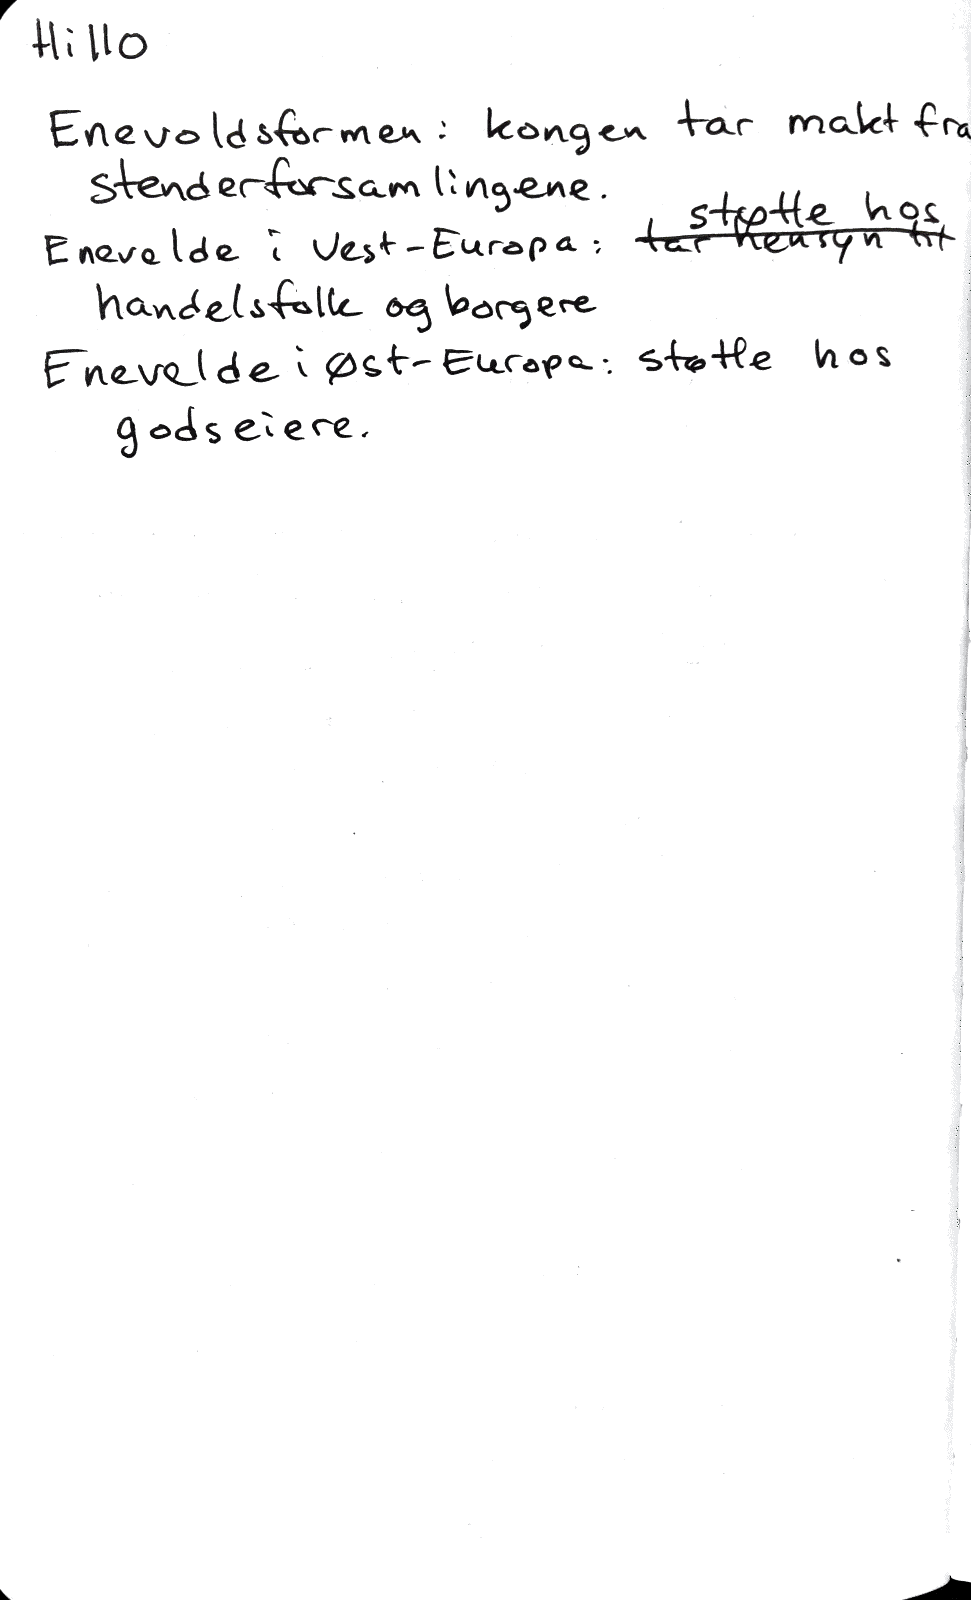 Hillo
Enevoldsformen: kongen tar makt fra
stenderforsamlingene.
støtte hos
Enevelde i Vest-Europa: tar hensyn til
handelsfolk og borgere
Enevelde i Øst-Europa: støtte hos
godseiere.